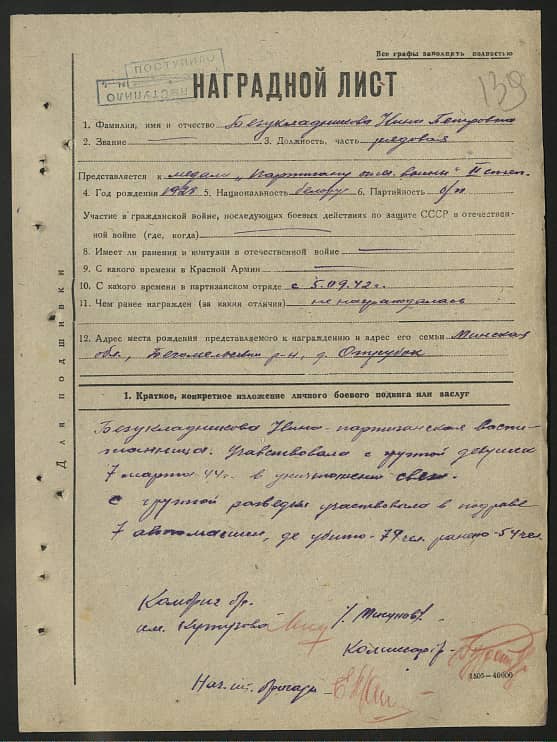 Все графы заполнять полностью
ПОСТУПИЛО
ПОСТУПИЛО
139
НАГРАДНОЙ ЛИСТ
1. Фамилия, имя и отчество Безукладникова Нина Петровна
2. Звание — 3. Должность, часть рядовая
Представляется к медали „Партизану отеч. войны" II степ.
4. Год рождения 1928 5. Национальность белорус 6. Партийность б/п
Участие в гражданской войне, последующих боевых действиях по защите СССР в отечествен-
ной войне (где, когда)
8. Имеет ли ранения и контузии в отечественной войне
9. С какого времени в Красной Армии
10. С какого времени в партизанском отряде с 5.09.42 г.
11. Чем ранее награжден (за какия отличия) не награждалась
12. Адрес места рождения представляемого к награждению и адрес его семьи Минская
обл., Бегомельский р-н, д. Отрубок
Для подшивки
1. Краткое, конкретное изложение личного боевого подвига или заслуг
Безукладникова Нина - партизанская воспи-
танница. Участвовала с группой девушек
7 марта 44 г. в уничтожении связи.
С группой разведки участвовала в подрыве
7 автомашин, где убито - 79 чел. ранено - 54 чел.
Комбриг бр.
им. Кутузова
Комиссар бр.
Нач. шт. бригады
1505-40000